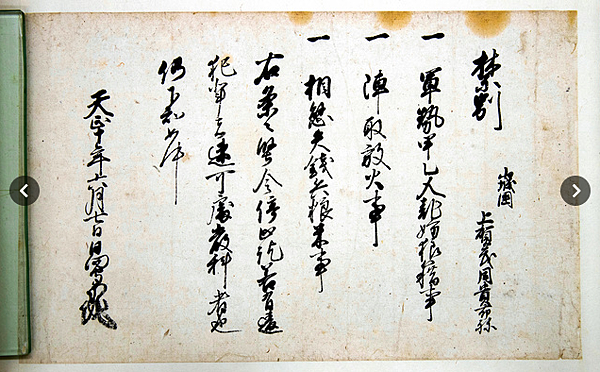 禁制
山城国
上賀茂同貴布祢
一 軍勢甲乙人乱妨狼藉事
一 陣取放火事
一 相懸矢銭兵粮米事
右条々堅令停止訖若有違
犯輩者速可處厳科者也
仍下知如件
天正十年六月七日日向守